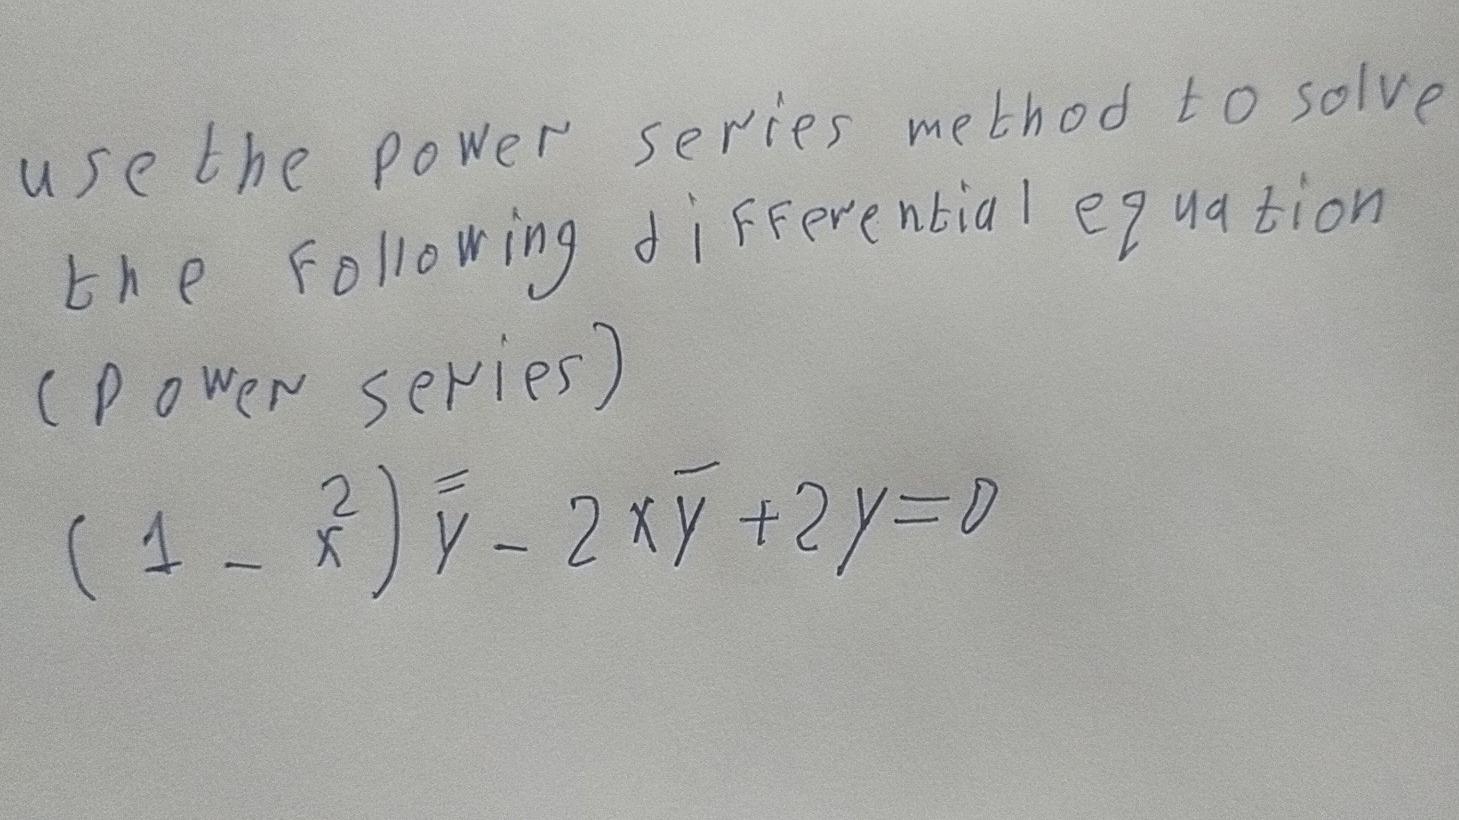 use the power series method to solve
the following differential equation
(power series)
(1 - x²) y̿ - 2xy̅ + 2y = 0